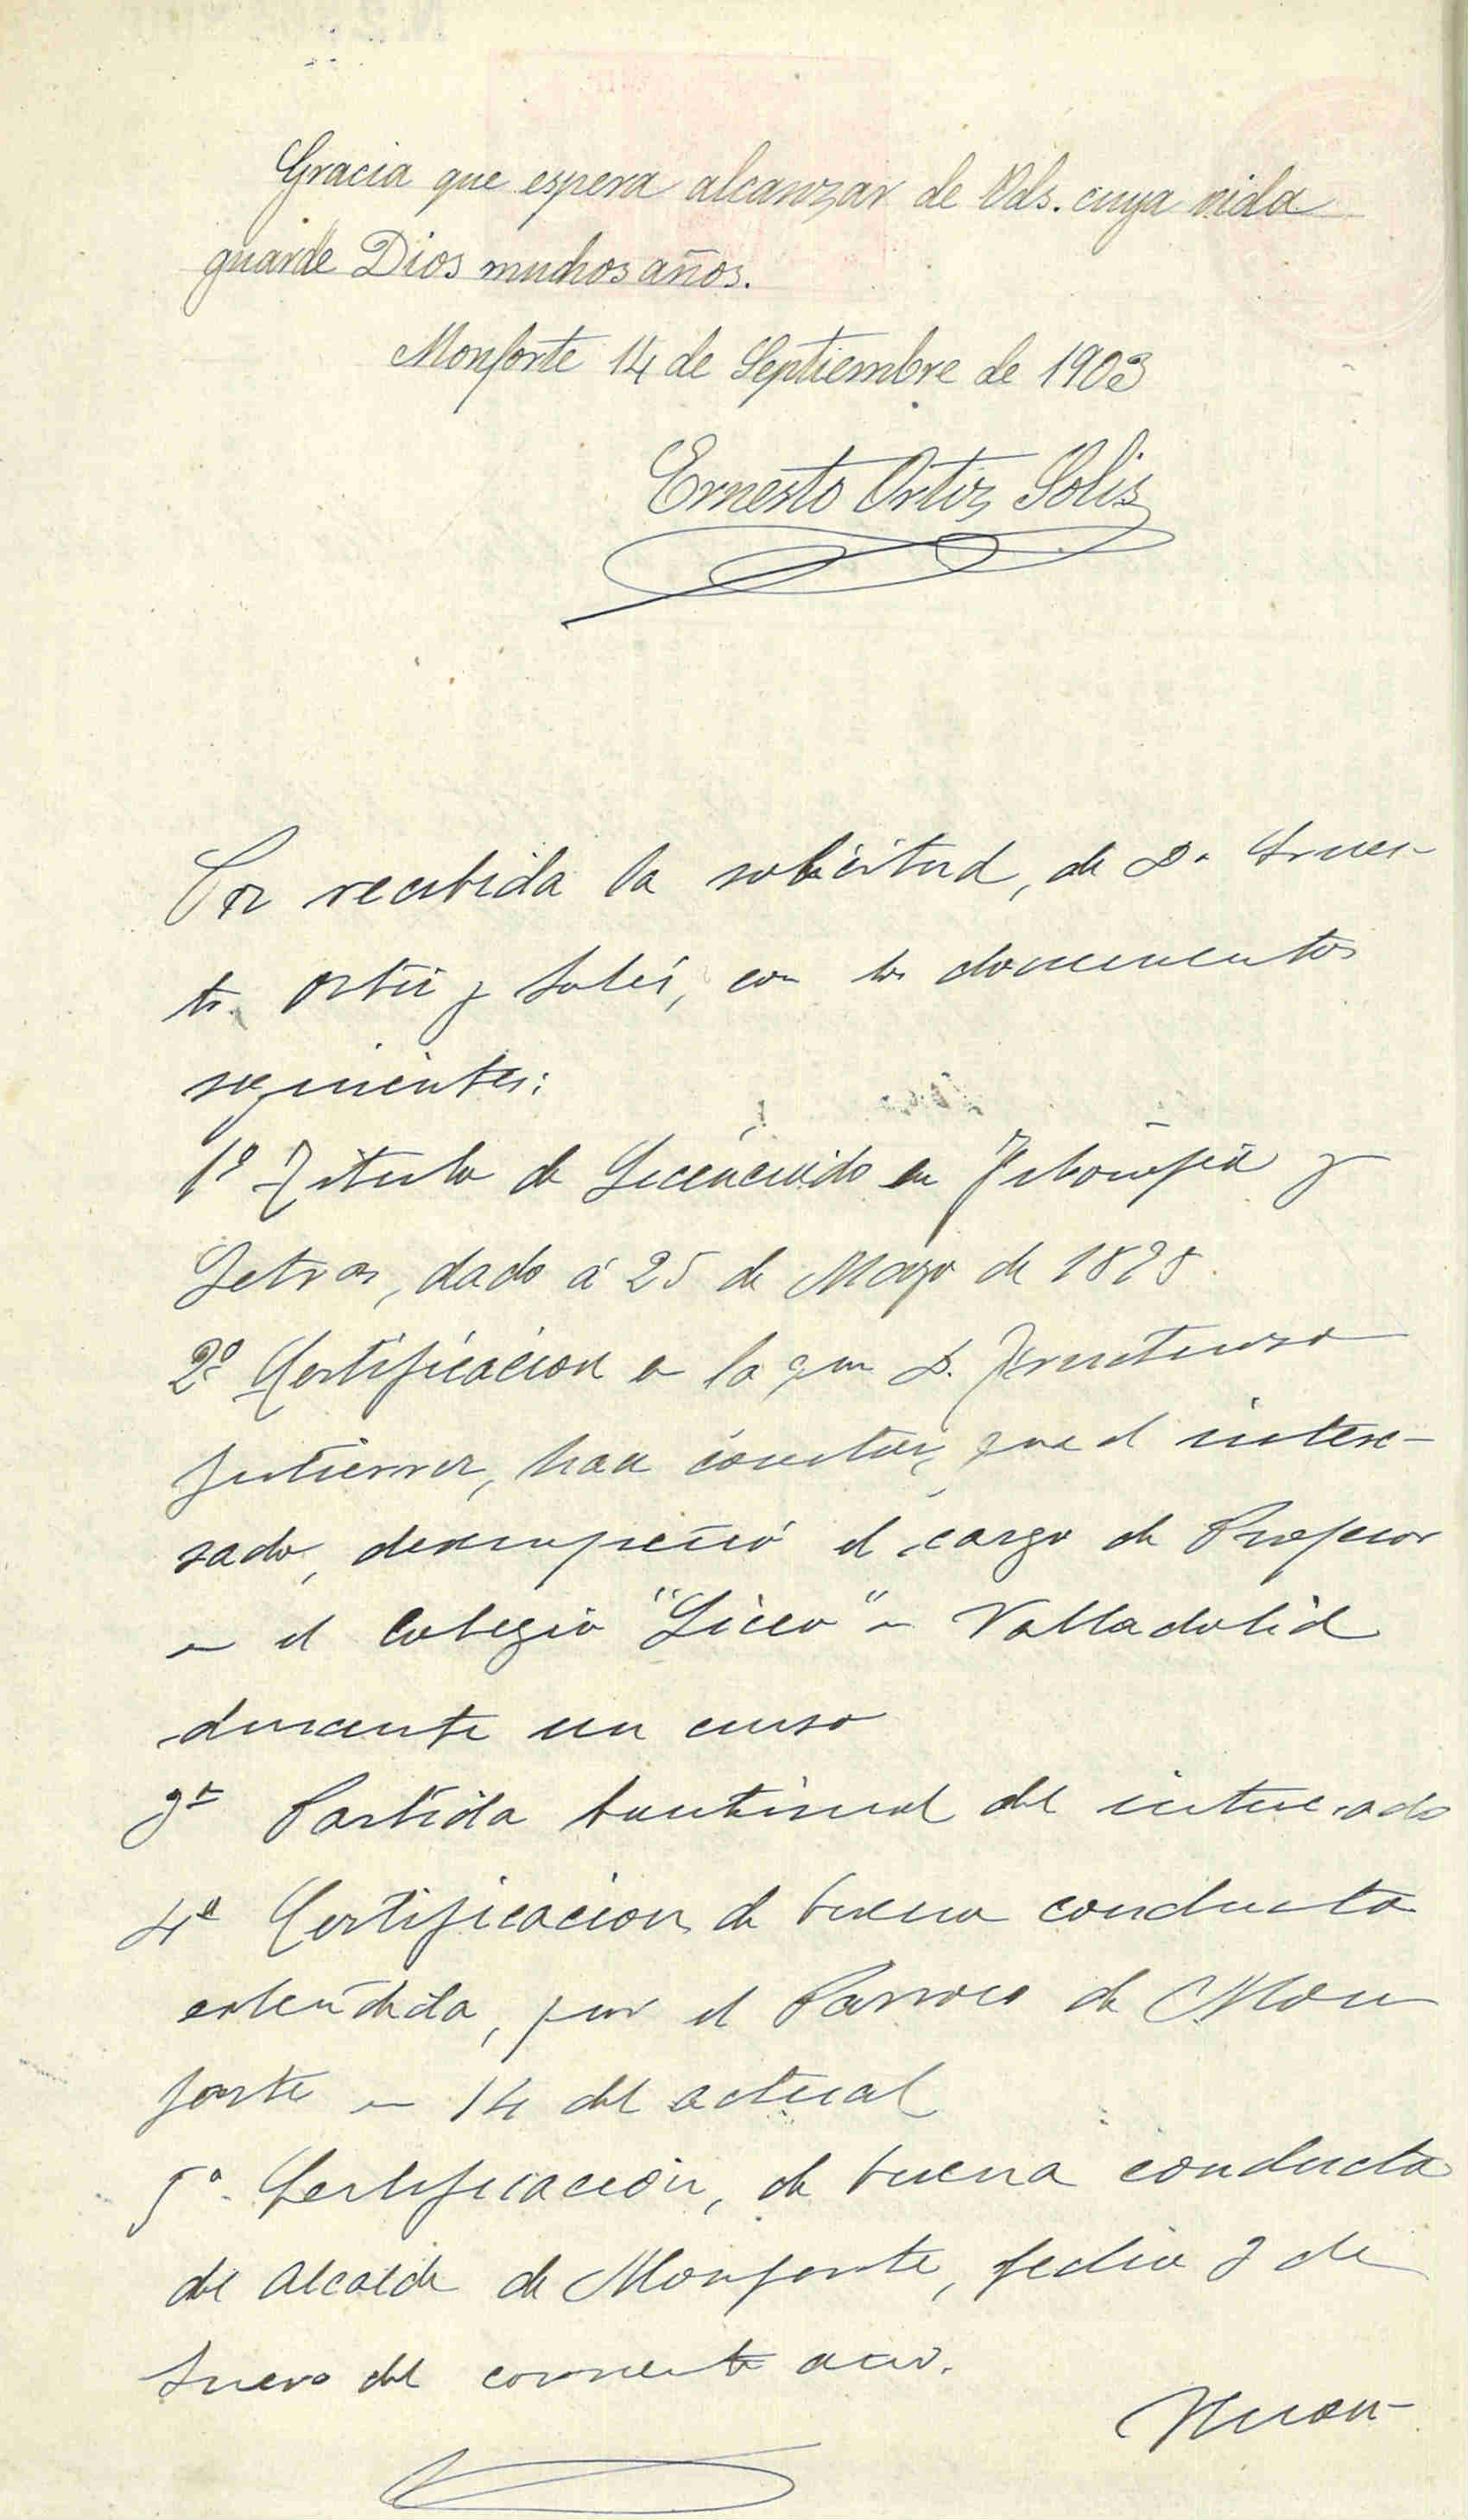 Gracia que espera alcanzar de Vds. cuya vida
guarde Dios muchos años.
Monforte 14 de Septiembre de 1903
Ernesto Ortiz Solis
Por recibida la solicitud, de Dn Ernes-
to Ortiz y Solís, con los documentos
siguientes:
1º Titulo de Licenciado en Filosofia y
Letras, dado á 25 de Mayo de
2º Certificacion en la que D. Fructuoso
Gutierrez, hace constar, que el intere-
sado, desempeñó el cargo de Profesor
en el Colegio "Liceo" en Valladolid
durante un curso
3º Partida bautismal del interesado
4º Certificacion de buena conducta
estendida, por el Parroco de Mon
forte en 14 del actual
5º Certificación, de buena conducta
del Alcalde de Monforte, fecha 3 de
Enero del corriente año.